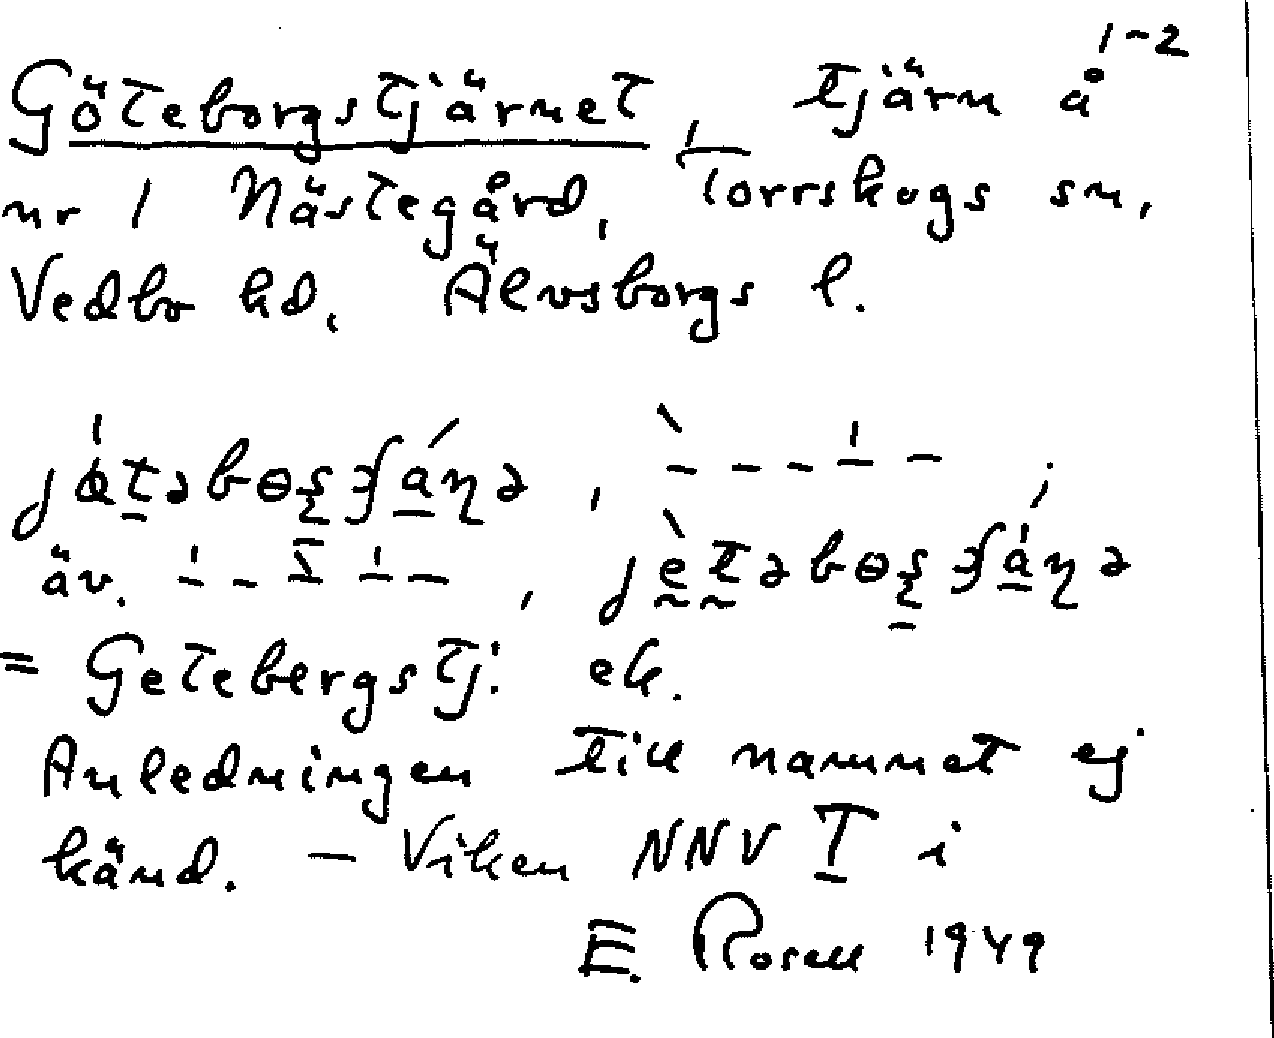 Göteborgstjärnet, tjärn å 1-2
nr 1 Nästegård, Torrskogs sn,
Vedbo hd, Älvsborgs l.
äv.
= Getebergstj: ek.
Anledningen till namnet ej
känd. – Viken NNV T i
E. Rosell 1949